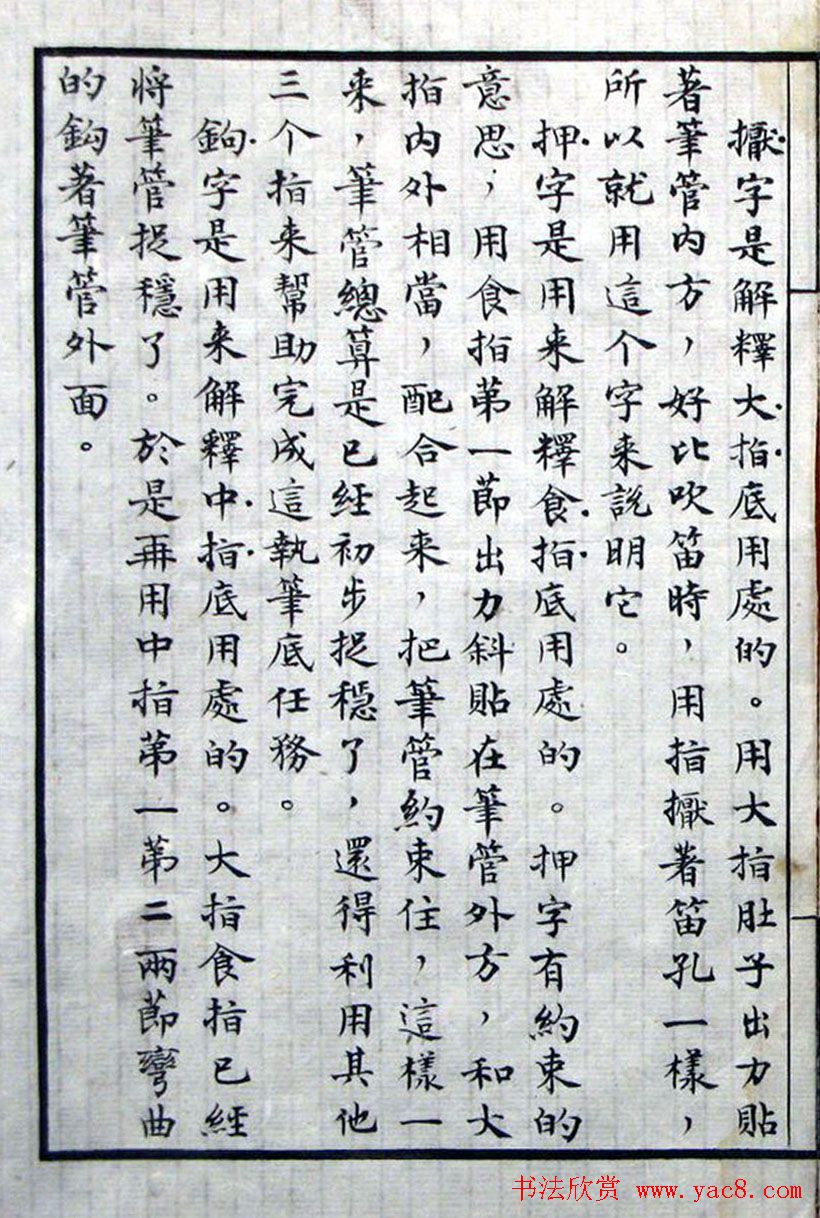 擫字是解釋大指底用處的。用大指肚子出力貼
著筆管内方，好比吹笛時，用指擫著笛孔一樣，
所以就用這个字来説明它。
押字是用来解釋食指底用處的。押字有約束的
意思，用食指第一節出力斜貼在筆管外方，和大
指内外相當，配合起来，把筆管約束住，這樣一
来，筆管總算是已經初步捉穩了，還得利用其他
三个指来幫助完成這執筆底任務。
鉤字是用来解釋中指底用處的。大指食指已經
将筆管捉穩了。於是再用中指第一第二兩節彎曲
的鈎著筆管外面。
书法欣赏 www.yac8.com